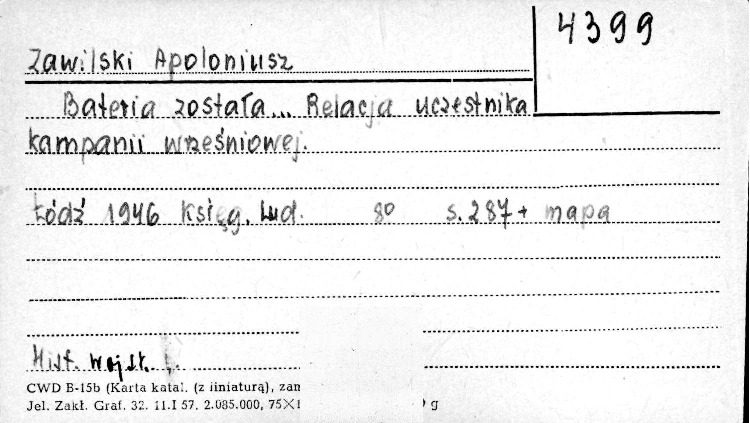 4399
Zawilski Apoloniusz
Bateria została... Relacja uczestnika
kampanii wrześniowej.
Łódź 1946 Księg. Lud. 8º s. 287 + mapa
Hist. wojsk.
CWD B-15b (Karta katal. (z liniaturą), zam
Jel. Zakł. Graf. 32. 11.I 57. 2.085.000, 75×1 g